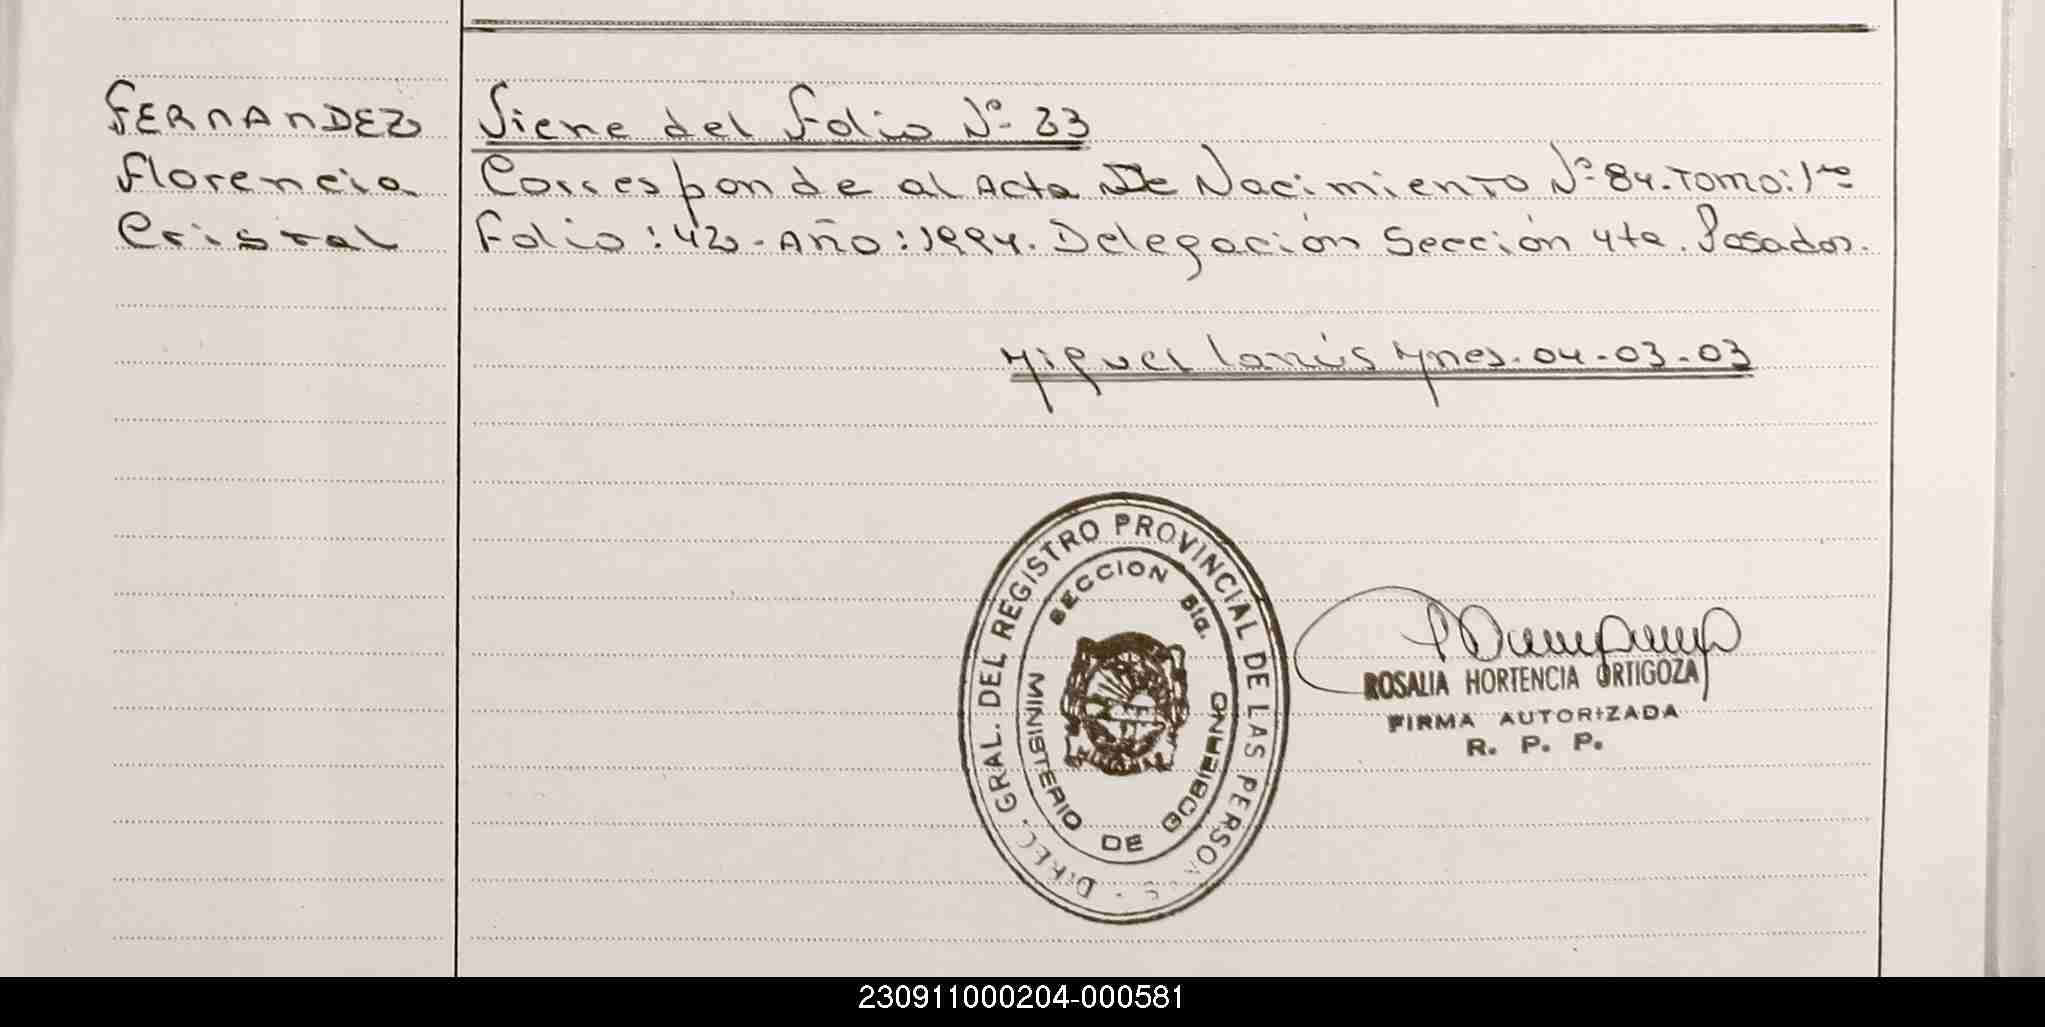 FERNANDEZ
Florencia
Cristal
Viene del Folio Nº 23
Corresponde al Acta De Nacimiento Nº 84. Tomo: 1ro
Folio: 42. Año: 1994. Delegación Sección 4ta. Posadas.
Miguel Lanús Mnes. 04-03-03
DIREC. GRAL. DEL REGISTRO PROVINCIAL DE LAS PERSONAS
SECCION 8ta.
MINISTERIO DE GOBIERNO
ROSALIA HORTENCIA ORTIGOZA
FIRMA AUTORIZADA
R. P. P.
230911000204-000581